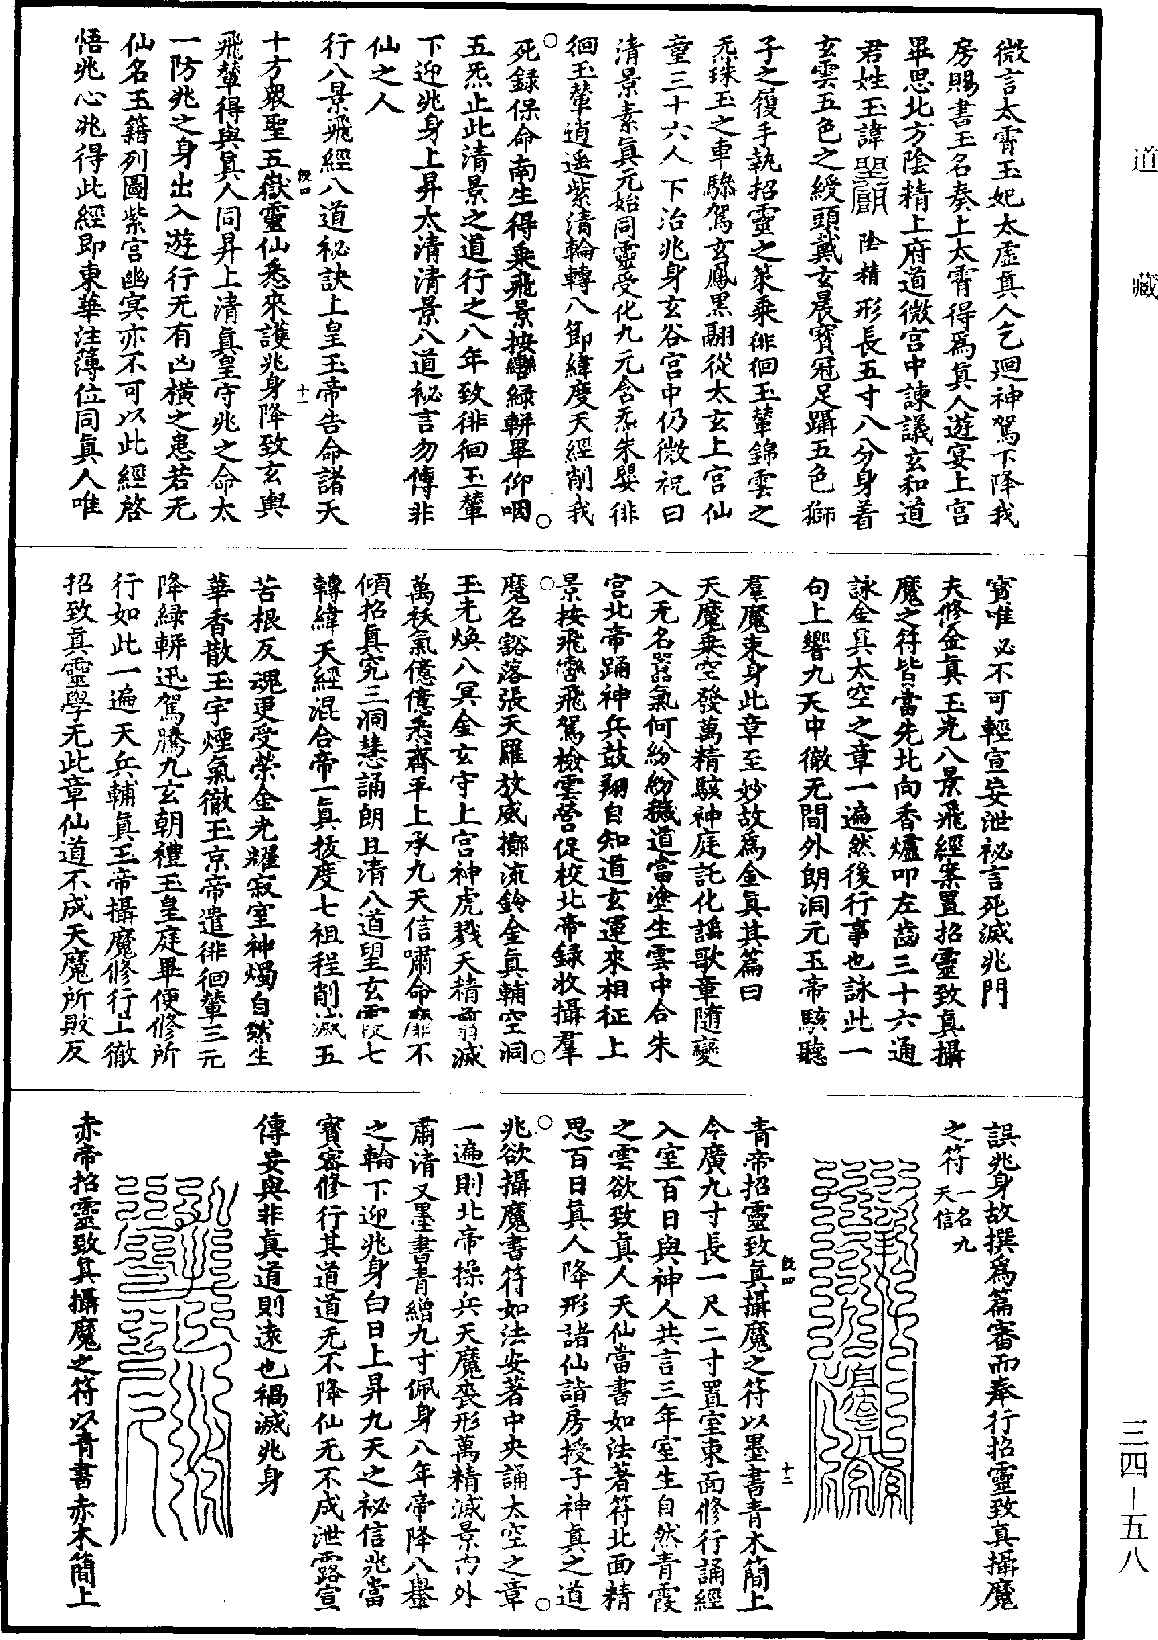 道藏
微言太霄玉妃太虛真人乞迴神駕下降我
房賜書玉名奏上太霄得為真人遊宴上宮
畢思北方陰精上府道微宮中諫議玄和道
君姓玉諱陰精形長五寸八分身著
玄雲五色之綬頭戴玄晨寶冠足躡五色獅
子之履手執招靈之策乘徘徊玉輦錦雲之
炁珠玉之車驂駕玄鳳黑翮從太玄上宮仙
童三十六人下治兆身玄谷宮中仍微祝曰
清景素真元始同靈受化九元含炁朱嬰徘
徊玉輦逍遙紫清輪轉八節緯度天經削我
死錄保命南生得乘飛景按轡綠軿畢仰咽
五炁止此清景之道行之八年致徘徊玉輦
下迎兆身上昇太清清景八道祕言勿傳非
仙之人
行八景飛經八道祕訣上皇玉帝告命諸天
既四 十一
十方眾聖五嶽靈仙悉來護兆身降致玄輿
飛輦得與真人同昇上清真皇守兆之命太
一防兆之身出入遊行无有凶橫之患若无
仙名玉籍列圖紫宮幽冥亦不可以此經啓
悟兆心兆得此經即東華注簿位同真人唯
寶唯必不可輕宣妄泄祕言死滅兆門
夫修金真玉光八景飛經案置招靈致真攝
魔之符皆當先北向香爐叩左齒三十六通
詠金真太空之章一遍然後行事也詠此一
句上響九天中徹无間外朗洞元玉帝駭聽
羣魔束身此章至妙故為金真其篇曰
天魔乘空發萬精駭神庭託化謠歌章隨變
入无名嚣氣何紛紛穢道當塗生雲中合朱
宮北帝踊神兵鼓翔自知道玄運來相征上
景按飛轡飛駕檢雲營促校北帝錄收攝羣
魔名豁落張天羅放威擲流鈴金真輔空洞
玉光煥八冥金玄守上宮神虎戮天精翦滅
萬袄氣億億悉齊平上承九天信嘯命靡不
傾招真究三洞慧誦朗且清八道望玄霞七
轉緯天經混合帝一真拔度七祖程削滅五
苦根反魂更受榮金光耀寂室神燭自然生
華香散玉宇煙氣徹玉京帝遣徘徊輦三元
降綠軿迅駕騰九玄朝禮玉皇庭畢便修所
行如此一遍天兵輔真玉帝攝魔修行上徹
招致真靈學无此章仙道不成天魔所敗反
誤兆身故撰為篇審而奉行招靈致真攝魔
之符一名九天信
既四 十二
青帝招靈致真攝魔之符以墨書青木簡上
令廣九寸長一尺二寸置室東面修行誦經
入室百日與神人共言三年室生自然青霞
之雲欲致真人天仙當書如法著符北面精
思百日真人降形諸仙詣房授子神真之道
兆欲攝魔書符如法安著中央誦太空之章
一遍則北帝操兵天魔喪形萬精滅景內外
肅清又墨書青繒九寸佩身八年帝降八轝
之輪下迎兆身白日上昇九天之祕信兆當
寶密修行其道道无不降仙无不成泄露宣
傳妄與非真道則遠也禍滅兆身
赤帝招靈致真攝魔之符以青書赤木簡上
三四－五八